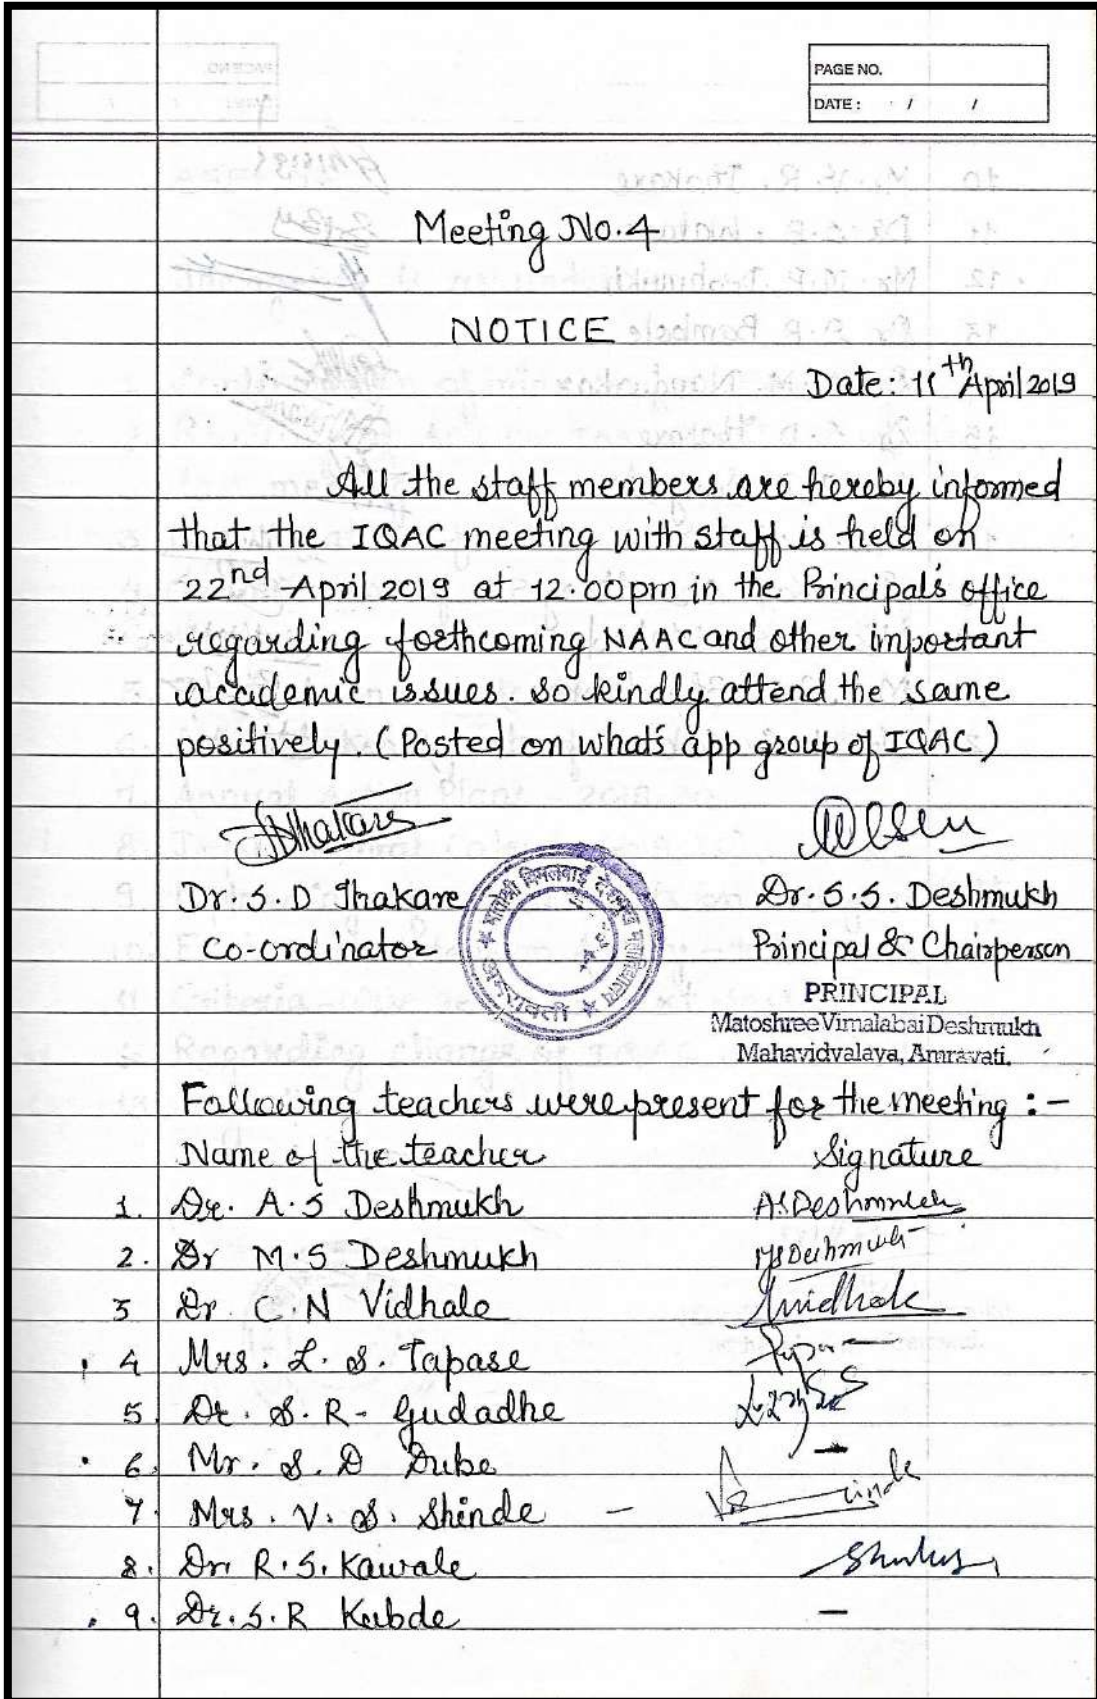 PAGE NO.
DATE : / /
Meeting No.4
NOTICE
Date: 11th April 2019
All the staff members are hereby informed
that the IQAC meeting with staff is held on
22nd April 2019 at 12.00pm in the Principal's office
regarding forthcoming NAAC and other important
academic issues. so kindly attend the same
positively. (Posted on what's app group of IQAC)
Dr. S. D Thakare
Dr. S. S. Deshmukh
Co-ordinator
Principal & Chairperson
मातोश्री विमलाबाई देशमुख महाविद्यालय
अमरावती
PRINCIPAL
Matoshree Vimalabai Deshmukh
Mahavidyalaya, Amravati.
Following teachers were present for the meeting :-
Name of the teacher Signature
1. Dr. A. S Deshmukh ASDeshmukh
2. Dr M. S Deshmukh MSDeshmukh
3 Dr. C. N Vidhale
4 Mrs. L. S. Tapase
5. Dr. S. R. Gudadhe
6. Mr. S. D Dube -
7. Mrs. V. S. Shinde -
8. Dr. R. S. Kawale
9. Dr. S. R Kubde -